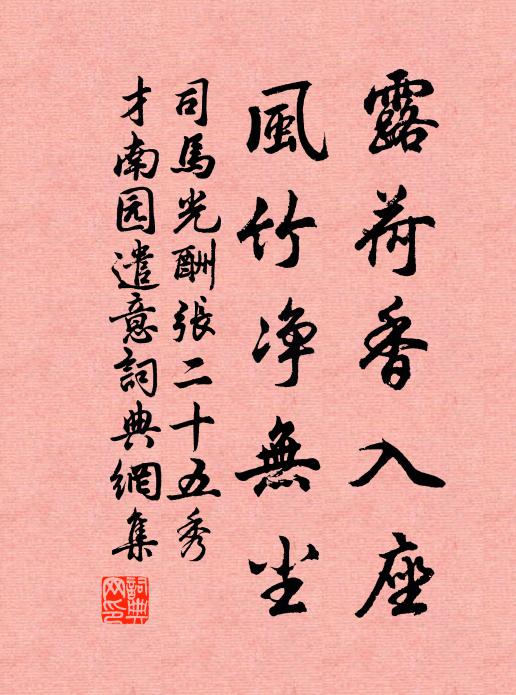 露荷香入座
風竹净無尘
司馬光酬張二十五秀
才南园遣意詞典網集
詞典网印